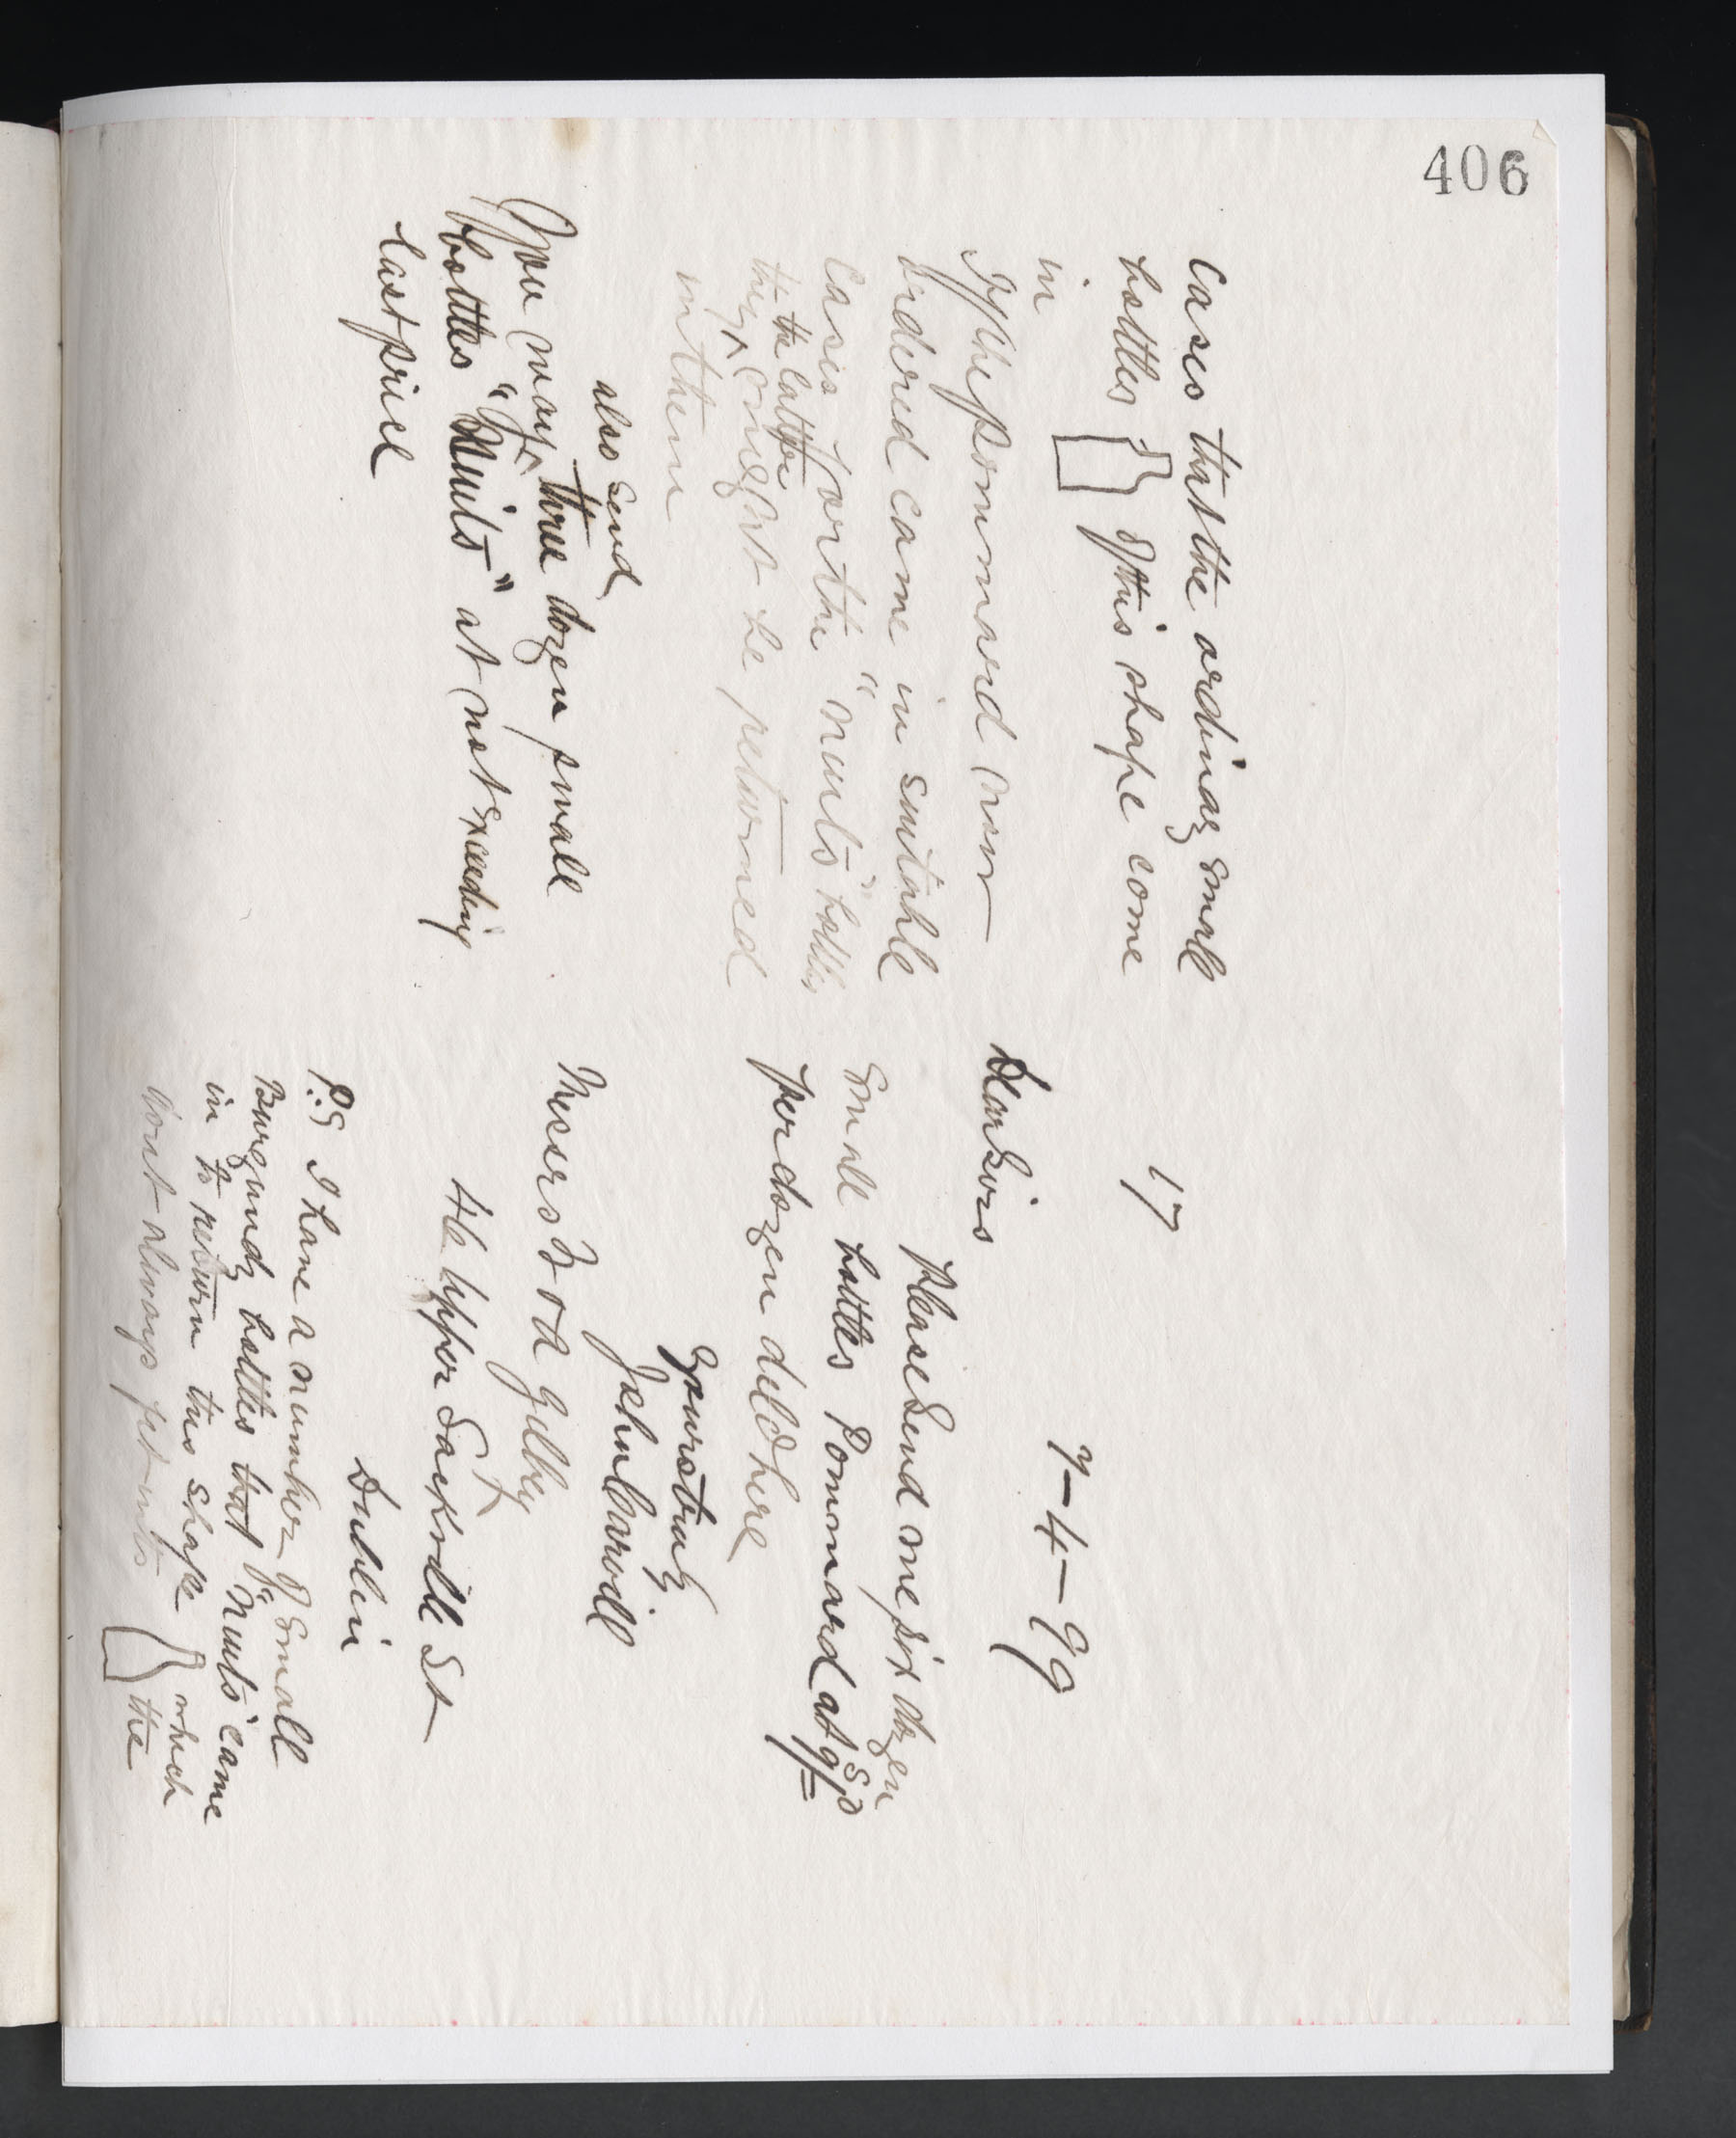 406
17
7-4-99
Dear Sirs
Please Send me six dozen
small bottles Pommard at 9s/-d
per dozen deld here
Yours truly
John Carvill
Messrs W & A Gilbey
46 Upper Sackville St
Dublin
P.S I have a number of small
Burgundy bottles that "Nuits" came
in to return this shape which
wont always fit into the
Cases that the ordinary small
bottles of this shape come
in
If the pommard now
ordered came in suitable
Cases for the "nuits" bottles
the latter
they might be returned
in them
also send
You may three dozen small
bottles "Nuits" at not exceeding
last price